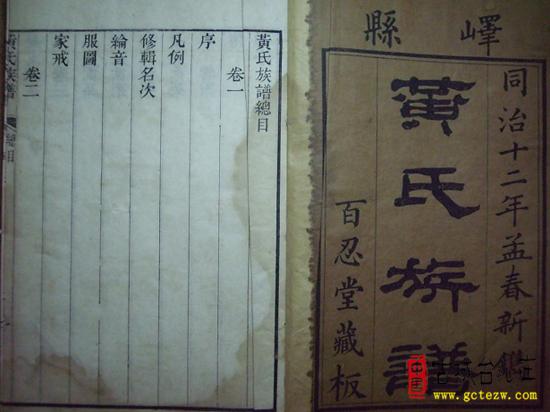 嶧縣
同治十二年孟春新鐫
黃氏族譜
百忍堂藏板
黃氏族譜總目
卷一
序
凡例
修輯名次
綸音
服圖
家戒
卷二
黃氏族譜
www.gctezw.com